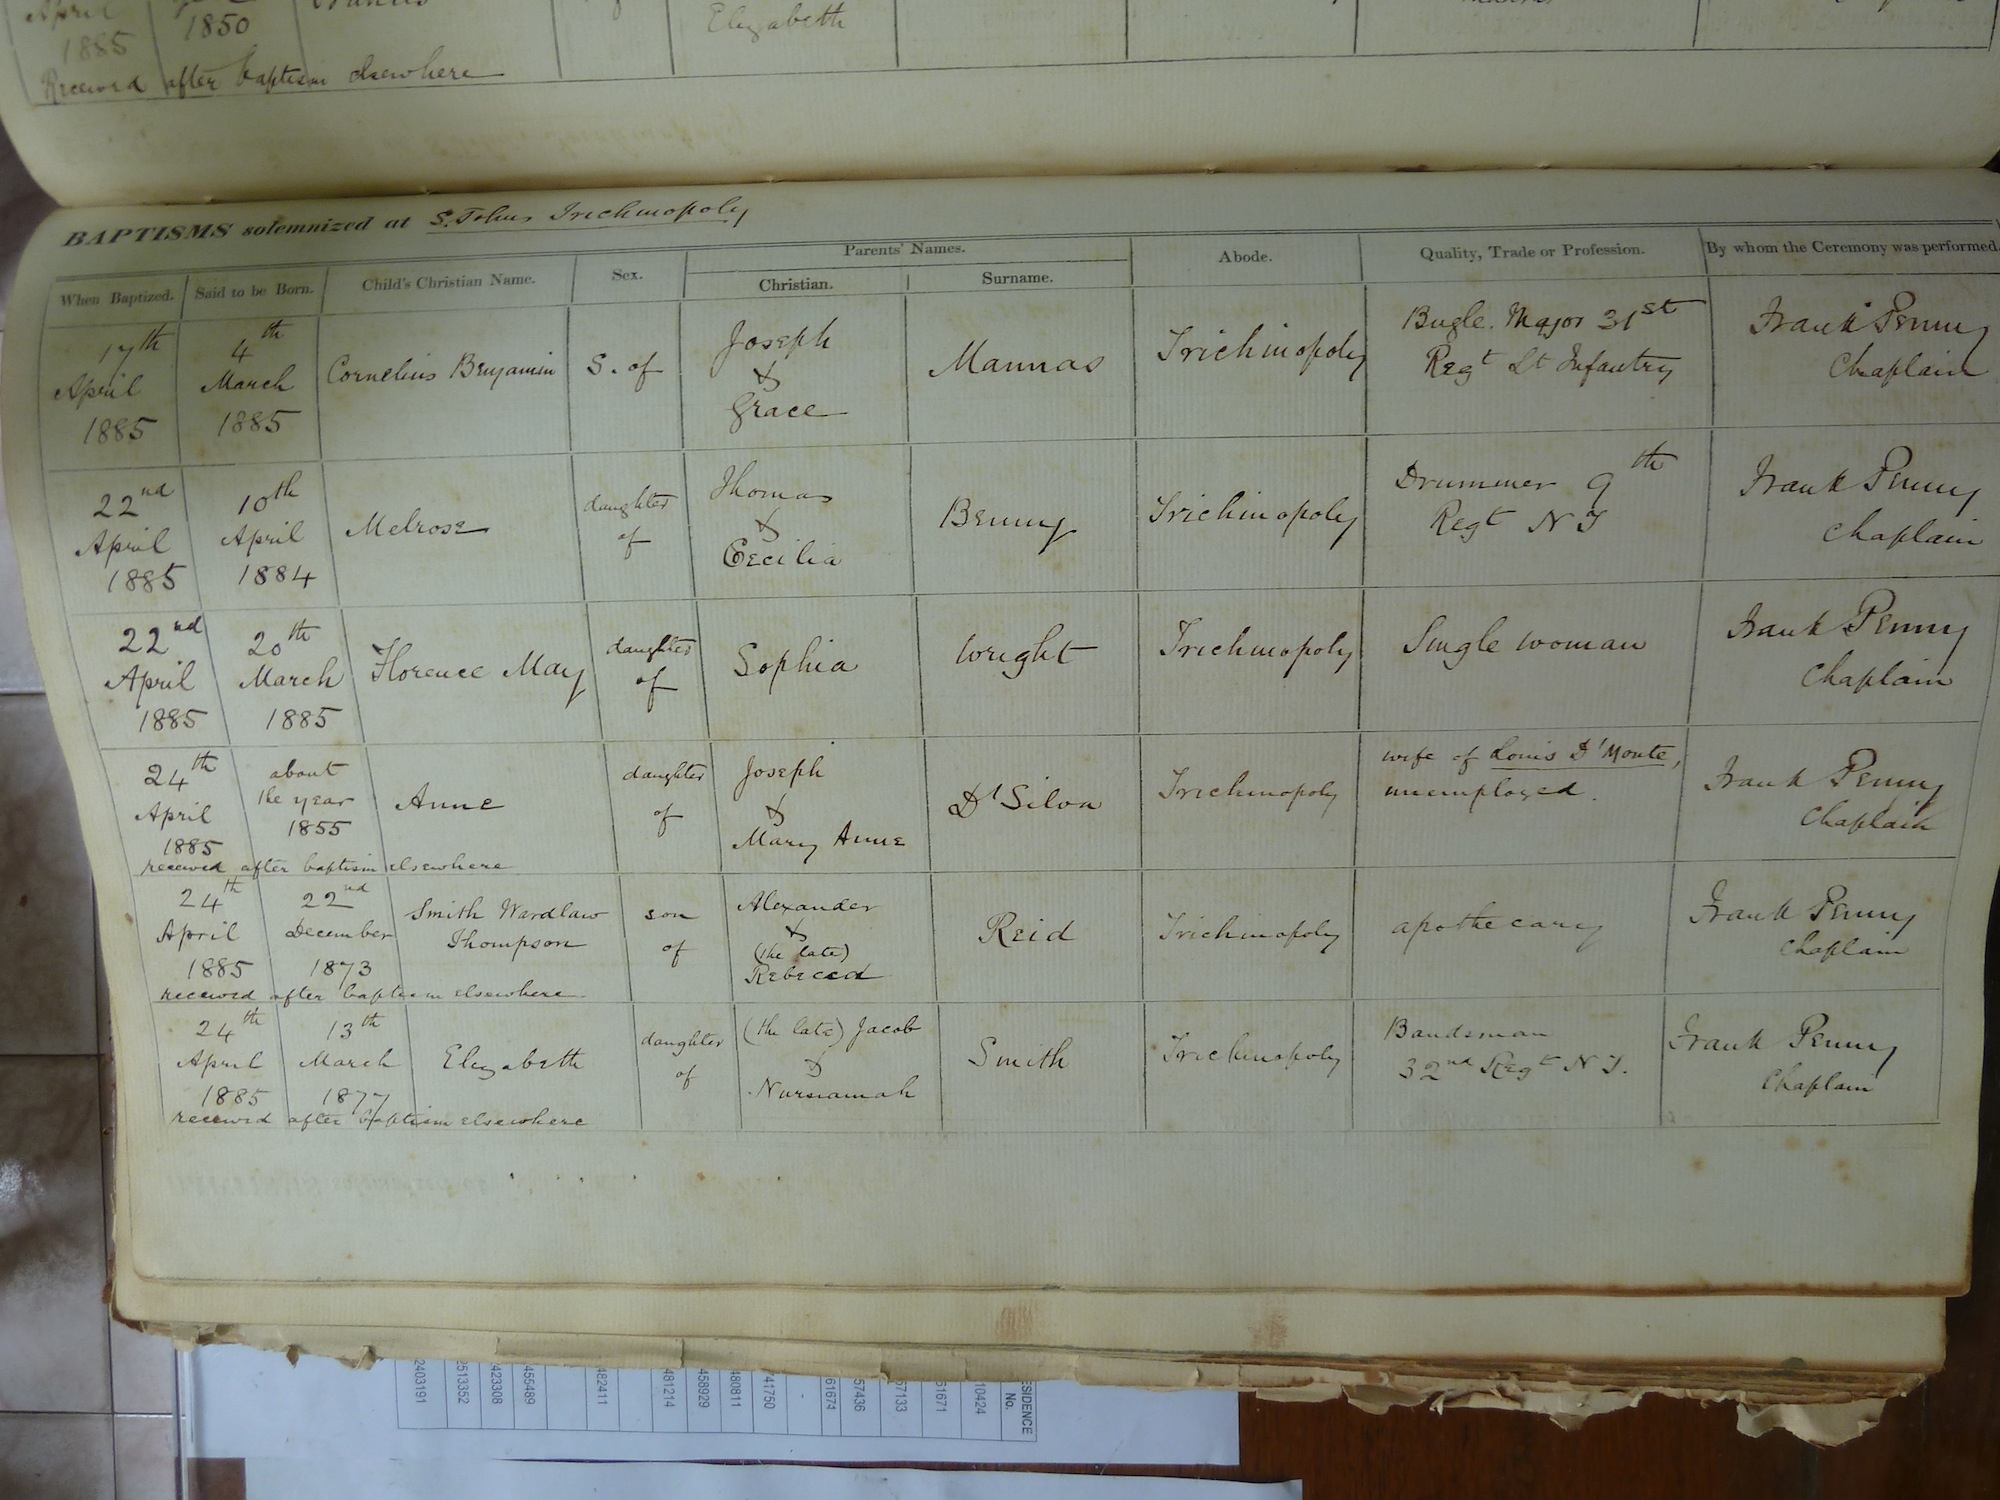 April
1885
1850
Elizabeth
Received after baptism elsewhere
BAPTISMS solemnized at S. Johns Trichinopoly
When Baptized. Said to be Born. Child's Christian Name. Sex. Parents' Names. Abode. Quality, Trade or Profession. By whom the Ceremony was performed.
Christian. Surname.
17th April 1885 4th March 1885 Cornelius Benjamin S. of Joseph & Grace Mannas Trichinopoly Bugle. Major 31st Regt Lt Infantry Frank Penny Chaplain
22nd April 1885 10th April 1884 Melrose daughter of Thomas & Cecilia Benny Trichinopoly Drummer 9th Regt N I Frank Penny Chaplain
22nd April 1885 20th March 1885 Florence May daughter of Sophia Wright Trichinopoly Single woman Frank Penny Chaplain
24th April 1885 about the year 1855 Anne daughter of Joseph & Mary Anne D'Silva Trichinopoly wife of Louis D'Monte, unemployed. Frank Penny Chaplain
received after baptism elsewhere
24th April 1885 22nd December 1873 Smith Wardlaw Thompson son of Alexander & (the late) Rebecca Reid Trichinopoly apothecary Frank Penny Chaplain
received after baptism elsewhere
24th April 1885 13th March 1877 Elizabeth daughter of (the late) Jacob & Nursiamah Smith Trichinopoly Bandsman 32nd Regt N I. Frank Penny Chaplain
received after baptism elsewhere
2403191
2513352
423308
455489
482411
481214
458929
480811
741750
-
61674
57436
57133
61671
10424
ESIDENCE
No.